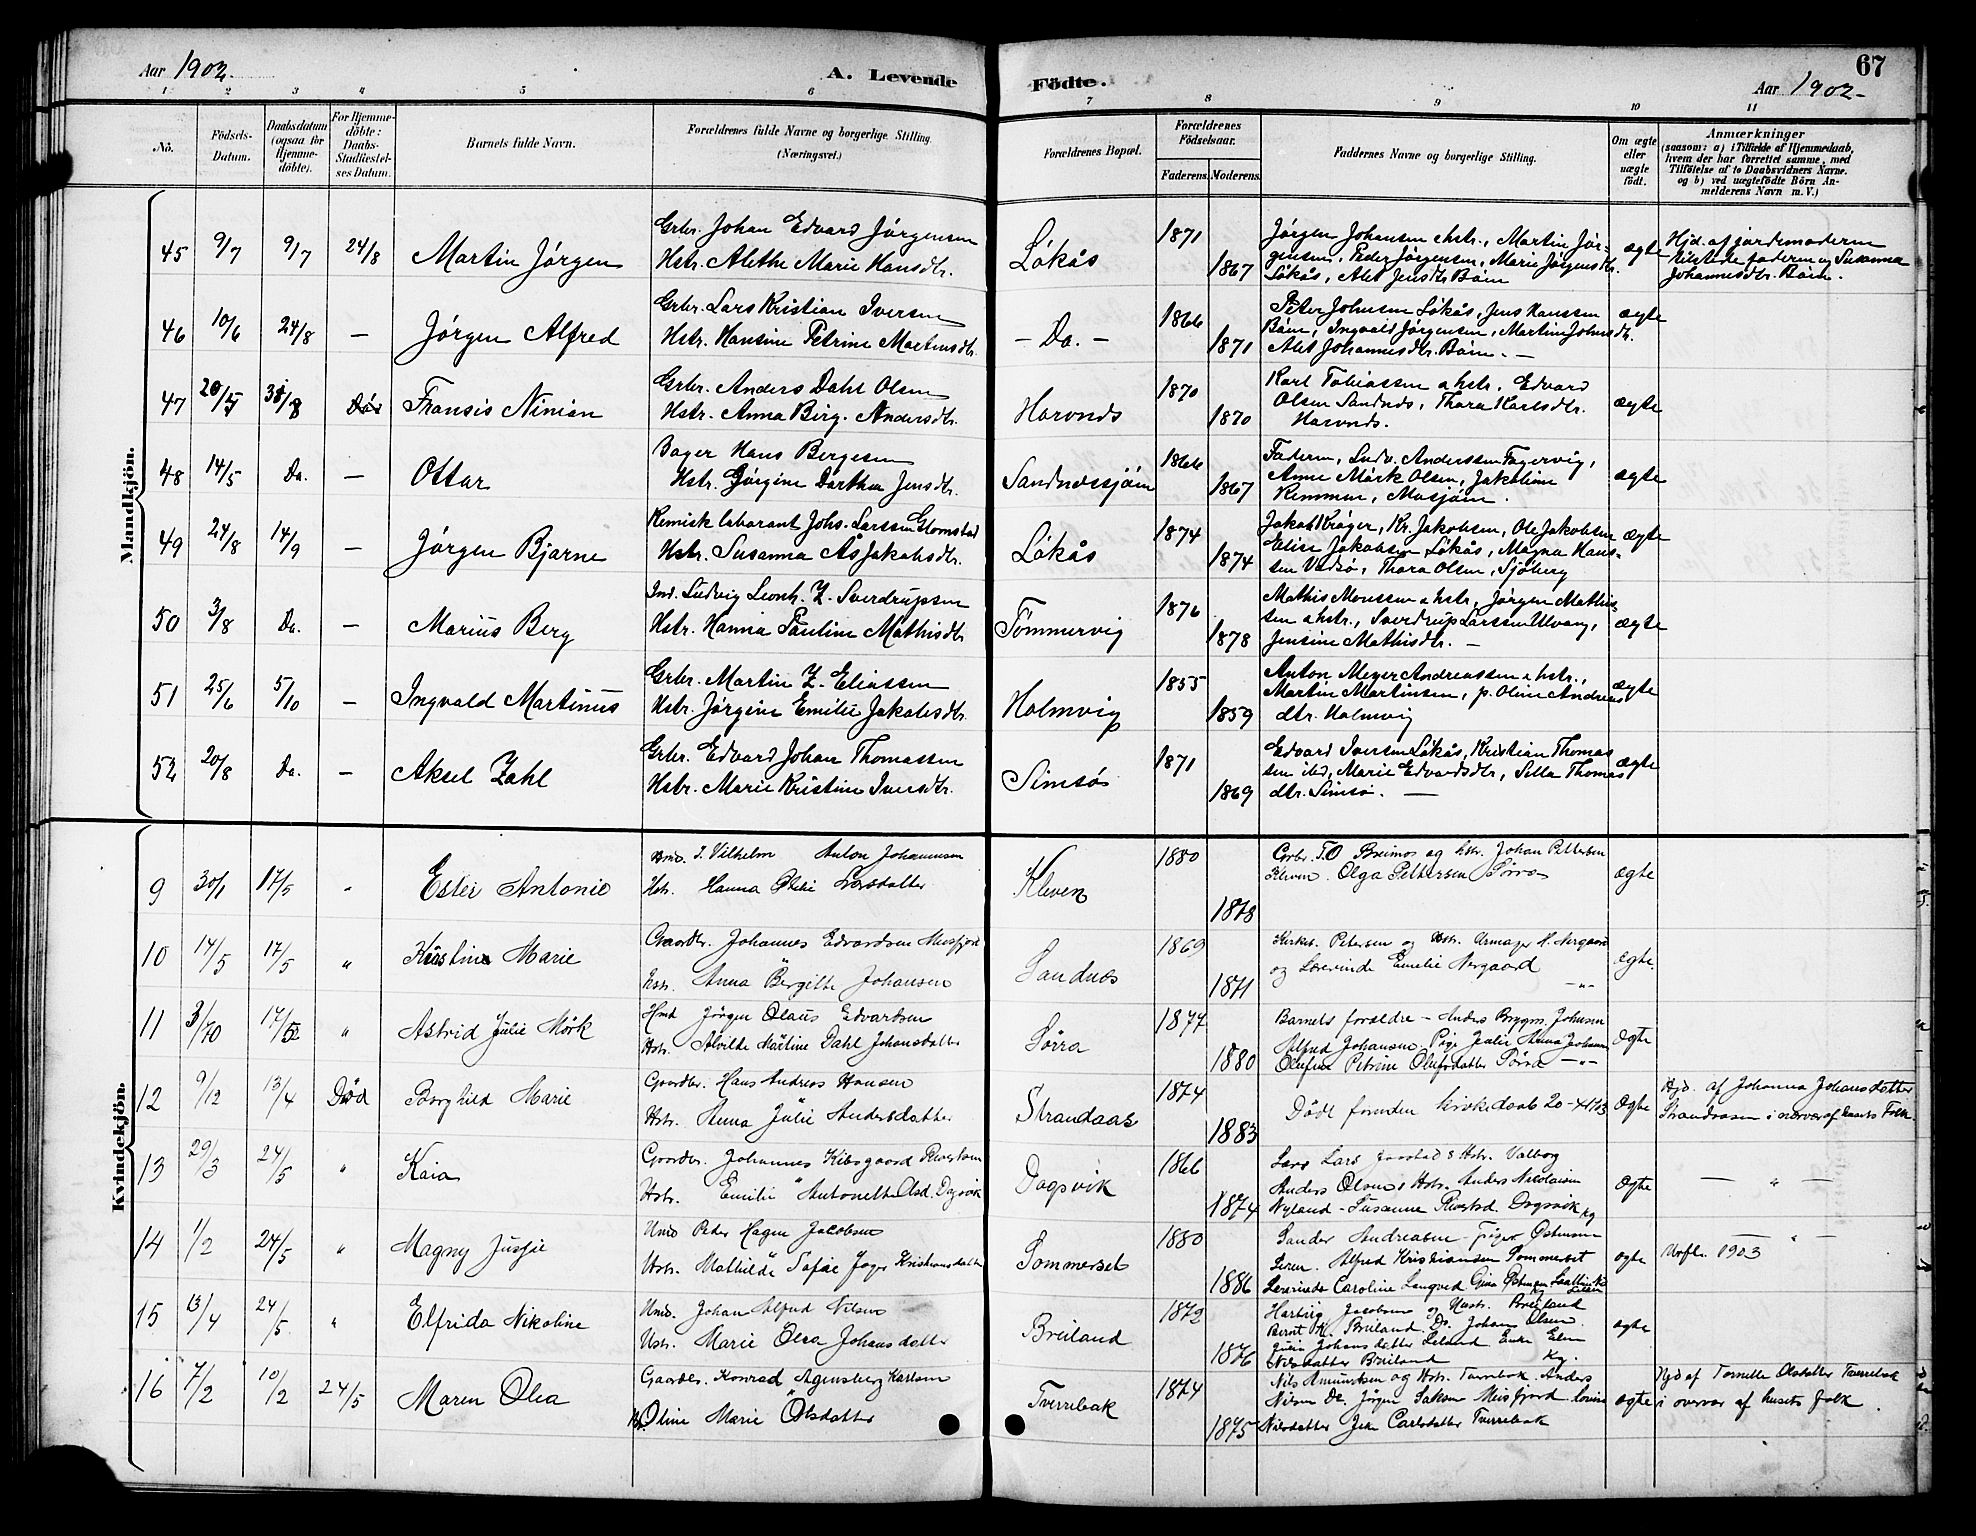 Aar 1902.
A. Levende
Födte.
67
Aar 1902-
1 2 3 4 5 6 7 8 9 10 11
No.
Födsels-
Datum.
Daabsdatum
(ogsaa for
Hjemme-
döbte).
For Hjemme-
döbte:
Daabs-
Stadfæstel-
ses Datum.
Barnets fulde Navn.
Forældrenes fulde Navne og borgerlige Stilling.
(Næringsvei.)
Forældrenes Bopæl.
Forældrenes
Födselsaar.
Faderens. Moderens.
Faddernes Navne og borgerlige Stilling.
Om ægte
eller
uægte
födt.
Anmærkninger
(saasom: a) i Tilfælde af Hjemmedaab,
hvem der har forrettet samme, med
Tilföielse af to Daabsvidners Navne.
og b) ved uægtefödte Börn An-
melderens Navn m. V.)
Mandkjön.
45 9/7 9/7 24/8 Martin Jørgen
Grbr. Johan Edvard Jørgensen
Hstr. Alethe Marie Hansdtr.
Løkås 1871 1867
Jørgen Johansen & hstr., Martin Jør-
gensen, Peder Jørgensen, Marie Jørgensdtr.
Løkås, Alet Jensdtr. Båen
ægte
Hjd. af jordemoderen
tilstede faderen og Susanna
Johannesdtr. Båen.
46 10/6 24/8 — Jørgen Alfred
Grbr. Lars Kristian Iversen
Hstr. Hansine Petrine Martinsdtr.
- Do. - 1866 1871
Peter Johnsen Løkås, Jens Hanssen
Båen, Ingvald Jørgensen, Martin Johnsdtr.
Alet Johannesdtr. Båen. —
ægte
47 Fransis Ninian
Grbr. Anders Dahl Olsen
Hstr. Anna Berg. Andersdtr.
1870 1870
Karl Tobiassen & hstr. Edvard
Olsen Sandnds, Thora Karlsdtr.
ægte
48 14/5 Do. — Ottar
Bager Hans Bergesen
Hstr. Jørgine Dorthea Jensdtr.
Sandnessjøen 1866 1867
Faderen, Ludv. Anderssen Fagervig,
Anne Mørk Olsen, Jakobine
Remmen, Mosjøen.
ægte
49 24/8 14/9 — Jørgen Bjarne
Kemisk laborant Johs. Larssen Glomstad
Hstr. Susanna Ås Jakobsdtr.
Løkås 1874 1874
Jakob Krøger, Kr. Jakobsen, Ole Jakobsen
Elise Jakobsen Løkås, Magna Hans-
sen Vadsø, Thora Olsen, Sjøberg
ægte
50 3/8 Do. — Marius Berg
Ind. Ludvig Leonh. Z. Sverdrupsen
Hstr. Hanna Pauline Mathisdtr.
Tømmervig 1876 1878
Mathis Monssen & hstr, Jørgen Mathis-
sen & hstr., Sverdrup Larssen Ulvang,
Jensine Mathisdtr. —
ægte
51 25/6 5/10 — Ingvald Martinus
Grbr. Martin Z. Eliassen
Hstr. Jørgine Emilie Jakobsdtr.
Holmvig 1855 1859
Anton Meyer Andreassen & hstr.,
Martin Martinsen, p. Oline Andreas
dtr. Holmvig
ægte
52 20/8 Do. — Aksel Zahl
Grbr. Edvard Johan Thomassen
Hstr. Marie Kristine Iversdtr.
Simsø 1871 1869
Edvard Iversen Løkås, Kristian Thomas
sen ibd, Marie Edvardsdtr, Sella Thomas
dtr. Simsø. —
ægte
Kvindekjön.
9 30/1 17/5 " Ester Antonie
J. Vilhelm Anton Johannesen
Hst. Hanna Larsdatter
Kleven 1880 1878
Johan Pettersen
Kleven. Olga Pettersen
ægte
10 14/5 17/5 " Kristine Marie
Gaardbr. Johannes Edvardsen Meisfjord
Hstr. Anna Bergitte Johansen
Sandnes 1869 1871
Kirkes. Petersen og Hstr.
og Lærerinde Emelie Nergaard
—"—
ægte.
11 3/10 17/5 " Astrid Julie Mörk
Jörgen Olaus Edvardsen
Hstr. Alvilde Martine Dahl Johansdatter
Sörra 1877 1880
Barnets forældre - Johnsen
Alfred Johansen. Pige Julie Anna
Petrine Olufsdatter —"—
ægte
12 9/12 13/4 Död Borghild Marie
Gaardbr. Hans Andreas Hansen
Hstr. Anna Julie Andersdatter
Strandaas 1874 1883
Död forinden kirkedaab 20-4 1903
ægte
Hjd. af Johanna Johansdatter
Strandaasen i nærvær af husets Folk.
13 29/3 24/5 " Kaia
Gaardbr. Johannes Kibsgaard
Hstr. Emilie Antonette Olsd. Dagsvik
Dagsvik 1866 1874
Lars & Hstr. Valborg
Anders Olsen & Hstr. Anders Nicolaisen
Nyland - Susanne Dagsvik
ægte
— " —
14 1/2 24/5 " Magny
Peder Hagen Jacobsen
Hstr. Mathilde Sofie Kristiansdatter
Sommerset 1880 1886
Sander Andreasen
Alfred Kristiansen Sommerset
Lærerinde Caroline
ægte
1903
— " —
15 13/4 24/5 " Elfrida Nikoline
Johan Alfred Nilsen
Hstr. Marie Olea Johansdatter
Breiland 1872 1876
Hartvig Jacobsen og Hustr. Breiland
Bernt K. Breiland. Do. Johan Olsen.
Julie Johansdatter Leland Enke
Nilsdatter Breiland
ægte
16 7/2 10/2 24/5 Maren Olea
Gaardbr. Konrad Karlsen
Oline Marie Olsdatter
Tverrebak 1874 1875
Nils og Hstr. Anders
Nilsen Do. Jörgen Meisfjord
Nilsdatter Carlsdatter Tverrebak
ægte
Hjd af Olsdatter Tverrebak
i overvær af husets folk.